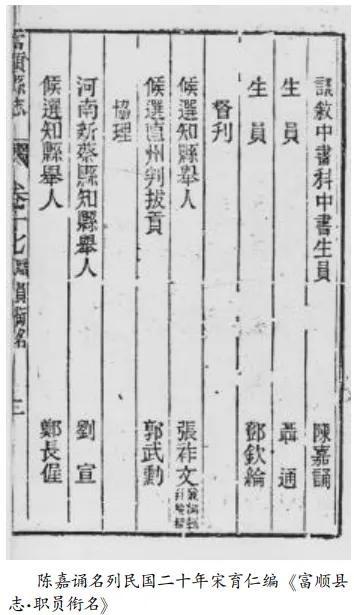 議敘中書科中書生員 陳嘉誦
生員 聶通
生員 鄧欽綸
督刋
候選知縣舉人 張祚文
候選直州判拔貢 郭武勳
協理
河南新蔡縣知縣舉人 劉宣
候選知縣舉人 鄭長偓
富順縣志 卷十七 員銜名 三
陈嘉诵名列民国二十年宋育仁编《富顺县
志·职员衔名》